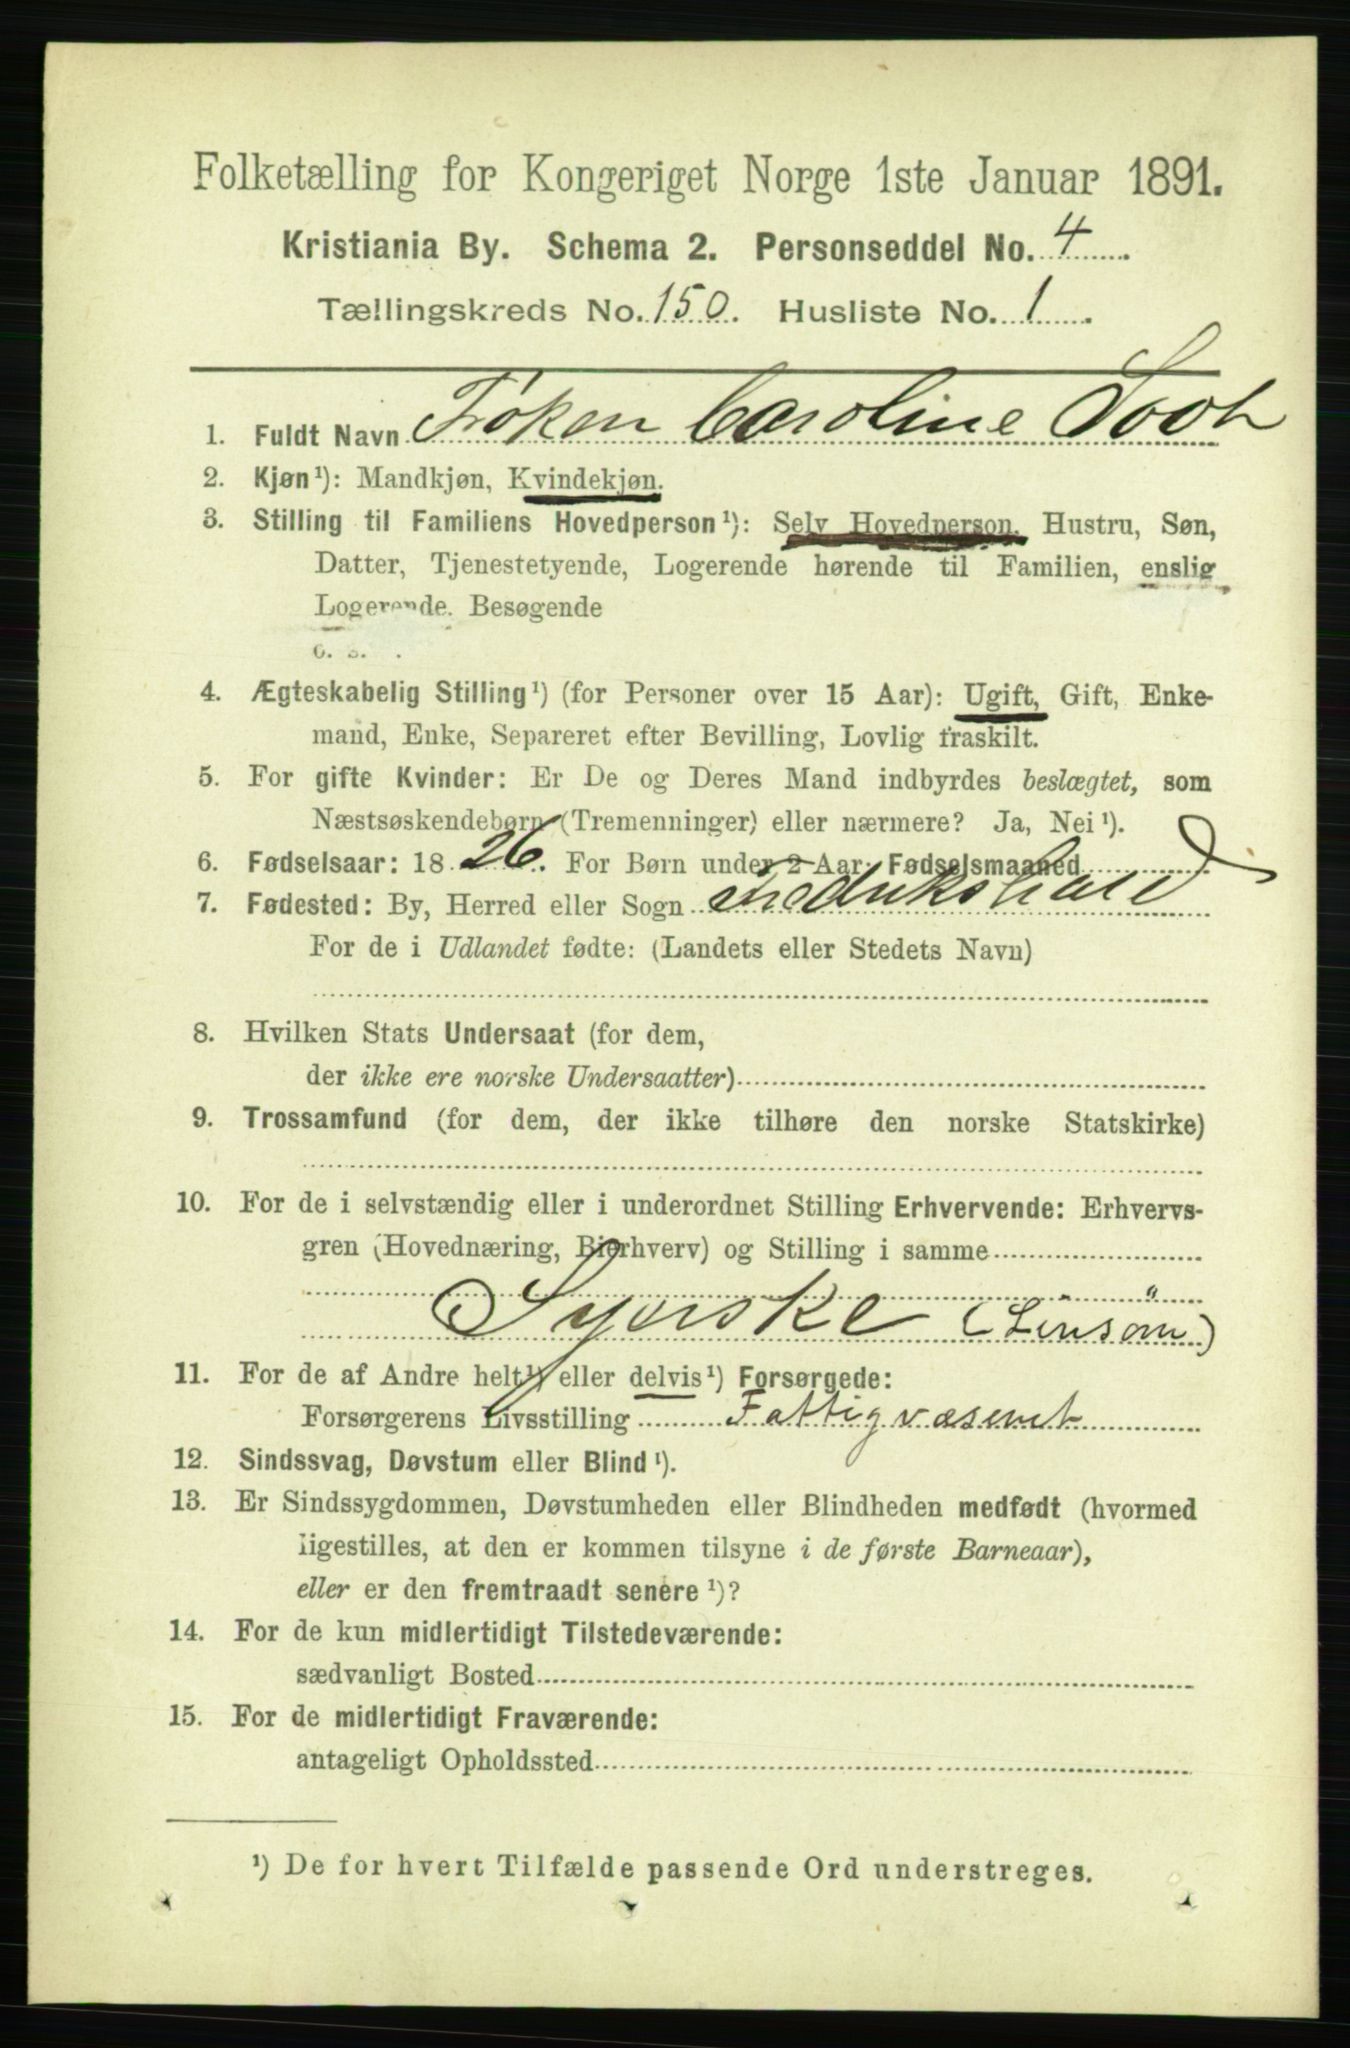 Folketælling for Kongeriget Norge 1ste Januar 1891.
Kristiania By. Schema 2. Personseddel No. 4
Tællingskreds No. 150. Husliste No. 1
1. Fuldt Navn Frøken Caroline Soot
2. Kjøn¹): Mandkjøn, Kvindekjøn.
3. Stilling til Familiens Hovedperson¹): Selv Hovedperson, Hustru, Søn,
Datter, Tjenestetyende, Logerende hørende til Familien, enslig
Logerende. Besøgende
o. s. .
4. Ægteskabelig Stilling¹) (for Personer over 15 Aar): Ugift, Gift, Enke-
mand, Enke, Separeret efter Bevilling, Lovlig fraskilt.
5. For gifte Kvinder: Er De og Deres Mand indbyrdes beslægtet, som
Næstsøskendebørn (Tremenninger) eller nærmere? Ja, Nei¹).
6. Fødselsaar: 1826. For Børn under 2 Aar: Fødselsmaaned
7. Fødested: By, Herred eller Sogn Fredrikshald
For de i Udlandet fødte: (Landets eller Stedets Navn)
8. Hvilken Stats Undersaat (for dem,
der ikke ere norske Undersaatter)
9. Trossamfund (for dem, der ikke tilhøre den norske Statskirke)
10. For de i selvstændig eller i underordnet Stilling Erhvervende: Erhvervs-
gren (Hovednæring, Bierhverv) og Stilling i samme
Syerske (Linsöm)
11. For de af Andre helt¹) eller delvis¹) Forsørgede:
Forsørgerens Livsstilling Fattigvæsenet
12. Sindssvag, Døvstum eller Blind¹).
13. Er Sindssygdommen, Døvstumheden eller Blindheden medfødt (hvormed
ligestilles, at den er kommen tilsyne i de første Barneaar),
eller er den fremtraadt senere¹)?
14. For de kun midlertidigt Tilstedeværende:
sædvanligt Bosted
15. For de midlertidigt Fraværende:
antageligt Opholdssted
¹) De for hvert Tilfælde passende Ord understreges.